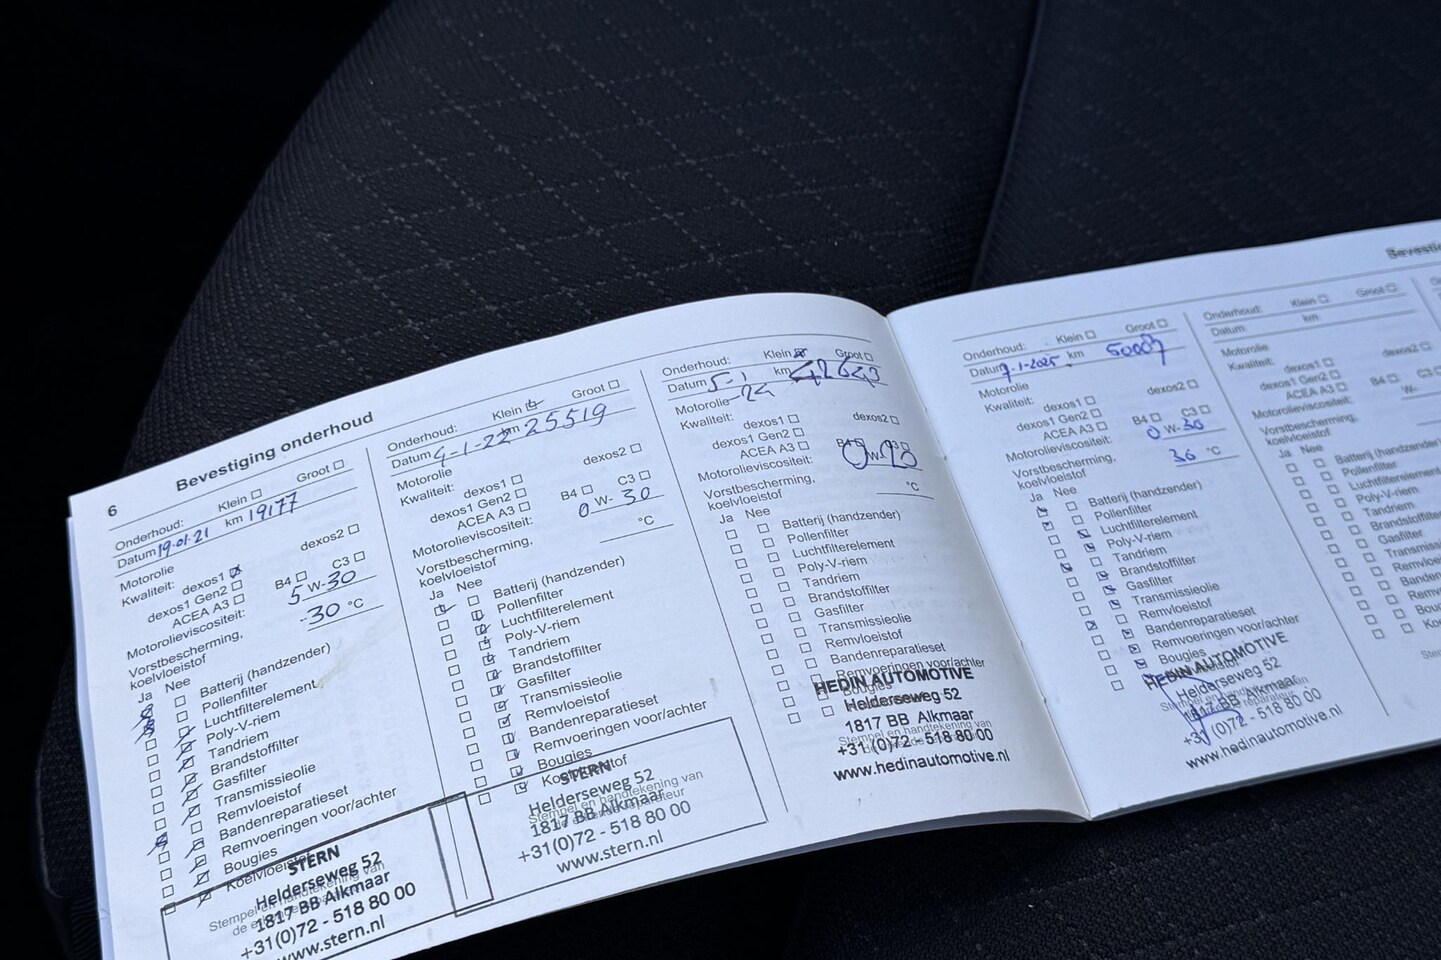 6
Bevestiging onderhoud
Onderhoud: Klein Groot
Datum 19-01-21 km 19177
Motorolie
Kwaliteit: dexos1 dexos2
dexos1 Gen2
ACEA A3 B4 C3
Motorolieviscositeit: 5 W- 30
Vorstbescherming, koelvloeistof -30 °C
Ja Nee
Batterij (handzender)
Pollenfilter
Luchtfilterelement
Poly-V-riem
Tandriem
Brandstoffilter
Gasfilter
Transmissieolie
Remvloeistof
Bandenreparatieset
Remvoeringen voor/achter
Bougies
Koelvloeistof
Stempel en handtekening van
STERN
Helderseweg 52
1817 BB Alkmaar
+31(0)72 - 518 80 00
www.stern.nl
Onderhoud: Klein Groot
Datum 9-1-22 km 25519
Motorolie
Kwaliteit: dexos1 dexos2
dexos1 Gen2
ACEA A3 B4 C3
Motorolieviscositeit: 0 W- 30
Vorstbescherming, koelvloeistof °C
Ja Nee
Batterij (handzender)
Pollenfilter
Luchtfilterelement
Poly-V-riem
Tandriem
Brandstoffilter
Gasfilter
Transmissieolie
Remvloeistof
Bandenreparatieset
Remvoeringen voor/achter
Bougies
Koelvloeistof
Stempel en handtekening van
STERN
Helderseweg 52
1817 BB Alkmaar
+31(0)72 - 518 80 00
www.stern.nl
Onderhoud: Klein Groot
Datum 5-1-24 km 42643
Motorolie
Kwaliteit: dexos1 dexos2
dexos1 Gen2
ACEA A3 B4
Motorolieviscositeit: W-
Vorstbescherming, koelvloeistof °C
Ja Nee
Batterij (handzender)
Pollenfilter
Luchtfilterelement
Poly-V-riem
Tandriem
Brandstoffilter
Gasfilter
Transmissieolie
Remvloeistof
Bandenreparatieset
Remvoeringen voor/achter
Bougies
HEDIN AUTOMOTIVE
Helderseweg 52
1817 BB Alkmaar
Stempel en handtekening van
+31 (0)72 - 518 80 00
www.hedinautomotive.nl
Onderhoud: Klein Groot
Datum 7-1-2025 km 50087
Motorolie
Kwaliteit: dexos1 dexos2
dexos1 Gen2
ACEA A3 B4 C3
Motorolieviscositeit: 0 W- 30
Vorstbescherming, koelvloeistof 36 °C
Ja Nee
Batterij (handzender)
Pollenfilter
Luchtfilterelement
Poly-V-riem
Tandriem
Brandstoffilter
Gasfilter
Transmissieolie
Remvloeistof
Bandenreparatieset
Remvoeringen voor/achter
Bougies
HEDIN AUTOMOTIVE
Helderseweg 52
1817 BB Alkmaar
+31 (0)72 - 518 80 00
www.hedinautomotive.nl
Onderhoud: Klein Groot
Datum km
Motorolie
Kwaliteit: dexos1 dexos2
dexos1 Gen2
ACEA A3 B4
Motorolieviscositeit: W-
Vorstbescherming, koelvloeistof
Ja Nee
Batterij (handzender)
Pollenfilter
Luchtfilterelement
Poly-V-riem
Tandriem
Brandstoffilter
Gasfilter